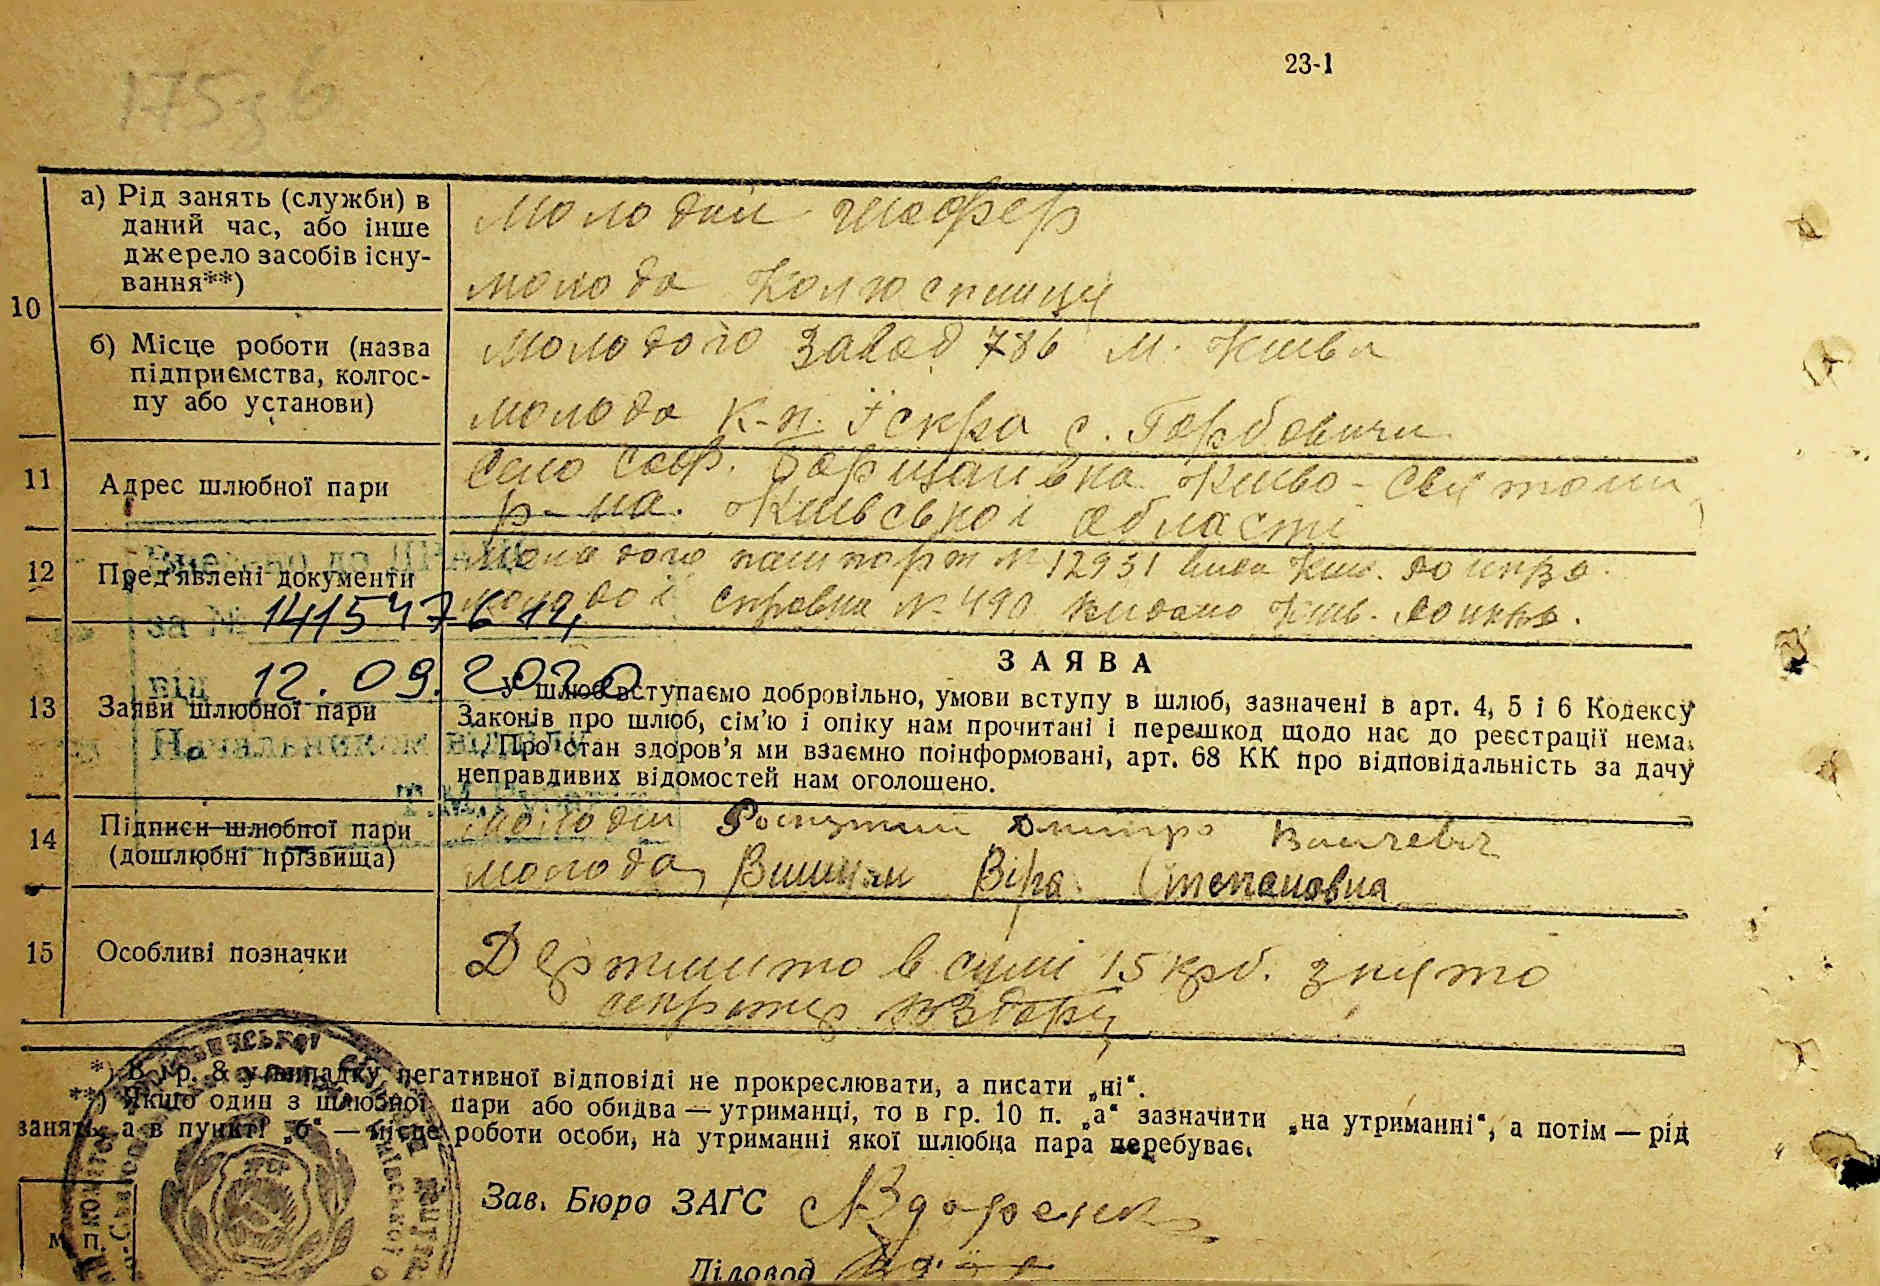 23-1
175 з б
10
а) Рід занять (служби) в
даний час, або інше
джерело засобів існу-
вання**)
молодий шофер
молода
б) Місце роботи (назва
підприємства, колгос-
пу або установи)
молодого завод 786 м. Київа
молода к-п. Іскра с. Горбовичи
11
Адрес шлюбної пари
Село Соф. Борщагівка Києво-Святошин
р-на. Київської області
12
Пред'явлені документи
молодого пашпорт № 12931 Київ.
молодої справка № 490 видано Київ.
Внесено до ДРАЦС
за № 14154761
від 12.09.2020
Начальником відділу
Т.М.
13
Заяви шлюбної пари
ЗАЯВА
У шлюб вступаємо добровільно, умови вступу в шлюб, зазначені в арт. 4, 5 і 6 Кодексу
Законів про шлюб, сім'ю і опіку нам прочитані і перешкод щодо нас до реєстрації нема.
Про стан здоров'я ми взаємно поінформовані, арт. 68 КК про відповідальність за дачу
неправдивих відомостей нам оголошено.
14
Підписи шлюбної пари
(дошлюбні прізвища)
молодий Дмитро
молода Віра Степановна
15
Особливі позначки
Держмито в сумі 15 крб. знято
секретар
*) В гр. 8 у випадку негативної відповіді не прокреслювати, а писати „ні“.
**) Якщо один з шлюбної пари або обидва — утриманці, то в гр. 10 п. „а“ зазначити „на утриманні“, а потім — рід
занять, а в пункті „б“ — місце роботи особи, на утриманні якої шлюбна пара перебуває.
УРСР
Зав. Бюро ЗАГС
М. П.
Діловод